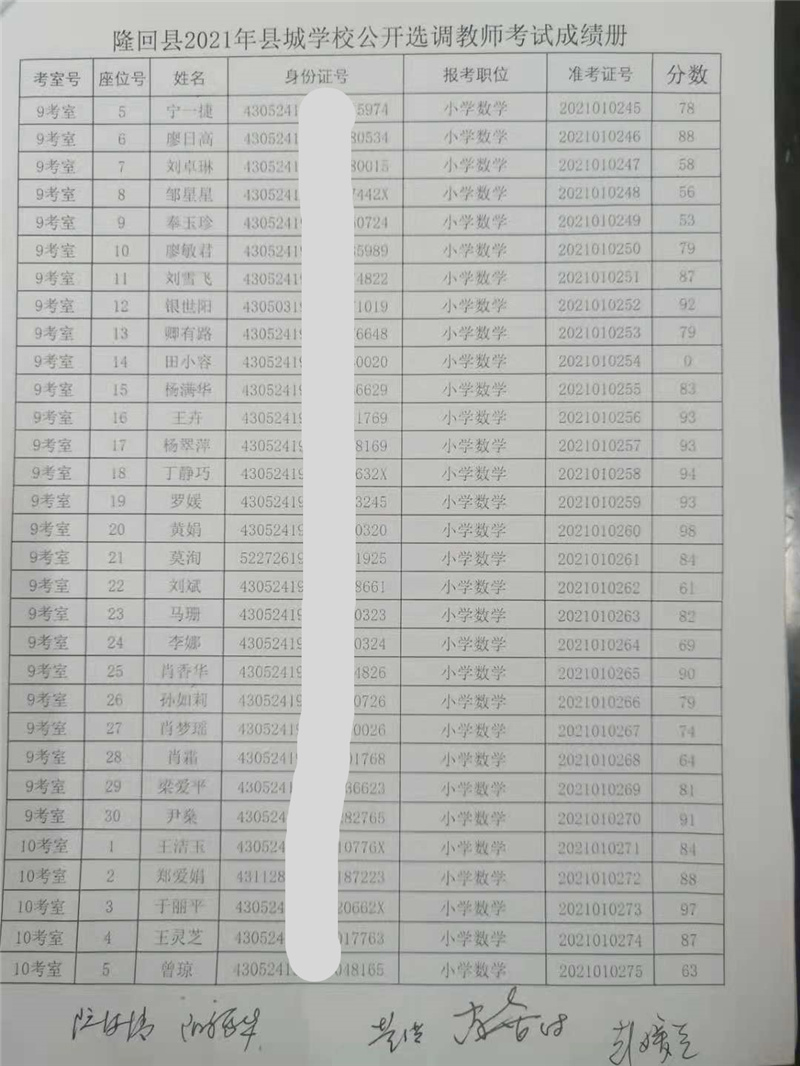 隆回县2021年县城学校公开选调教师考试成绩册
考室号 座位号 姓名 身份证号 报考职位 准考证号 分数
9考室 5 宁一捷 4305241 5974 小学数学 2021010245 78
9考室 6 廖日高 4305241 80534 小学数学 2021010246 88
9考室 7 刘卓琳 4305241 80015 小学数学 2021010247 58
9考室 8 邹星星 4305241 7442X 小学数学 2021010248 56
9考室 9 奉玉珍 4305241 50724 小学数学 2021010249 53
9考室 10 廖敏君 4305241 5989 小学数学 2021010250 79
9考室 11 刘雪飞 4305241 74822 小学数学 2021010251 87
9考室 12 银世阳 43050319 71019 小学数学 2021010252 92
9考室 13 卿有路 43052419 6648 小学数学 2021010253 79
9考室 14 田小容 43052419 0020 小学数学 2021010254 0
9考室 15 杨满华 43052419 6629 小学数学 2021010255 83
9考室 16 王卉 43052419 1769 小学数学 2021010256 93
9考室 17 杨翠萍 43052419 8169 小学数学 2021010257 93
9考室 18 丁静巧 43052419 632X 小学数学 2021010258 94
9考室 19 罗媛 43052419 3245 小学数学 2021010259 93
9考室 20 黄娟 43052419 0320 小学数学 2021010260 98
9考室 21 莫洵 52272619 1925 小学数学 2021010261 84
9考室 22 刘斌 43052419 8661 小学数学 2021010262 61
9考室 23 马珊 43052419 0323 小学数学 2021010263 82
9考室 24 李娜 43052419 0324 小学数学 2021010264 69
9考室 25 肖香华 43052419 4826 小学数学 2021010265 90
9考室 26 孙如莉 4305241 0726 小学数学 2021010266 79
9考室 27 肖梦瑶 4305241 0026 小学数学 2021010267 74
9考室 28 肖霜 4305241 01768 小学数学 2021010268 64
9考室 29 梁爱平 430524 36623 小学数学 2021010269 81
9考室 30 尹燊 430524 82765 小学数学 2021010270 91
10考室 1 王洁玉 430524 10776X 小学数学 2021010271 84
10考室 2 郑爱娟 431128 187223 小学数学 2021010272 88
10考室 3 于丽平 430524 20662X 小学数学 2021010273 97
10考室 4 王灵芝 430524 017763 小学数学 2021010274 87
10考室 5 曾琼 430524 048165 小学数学 2021010275 63